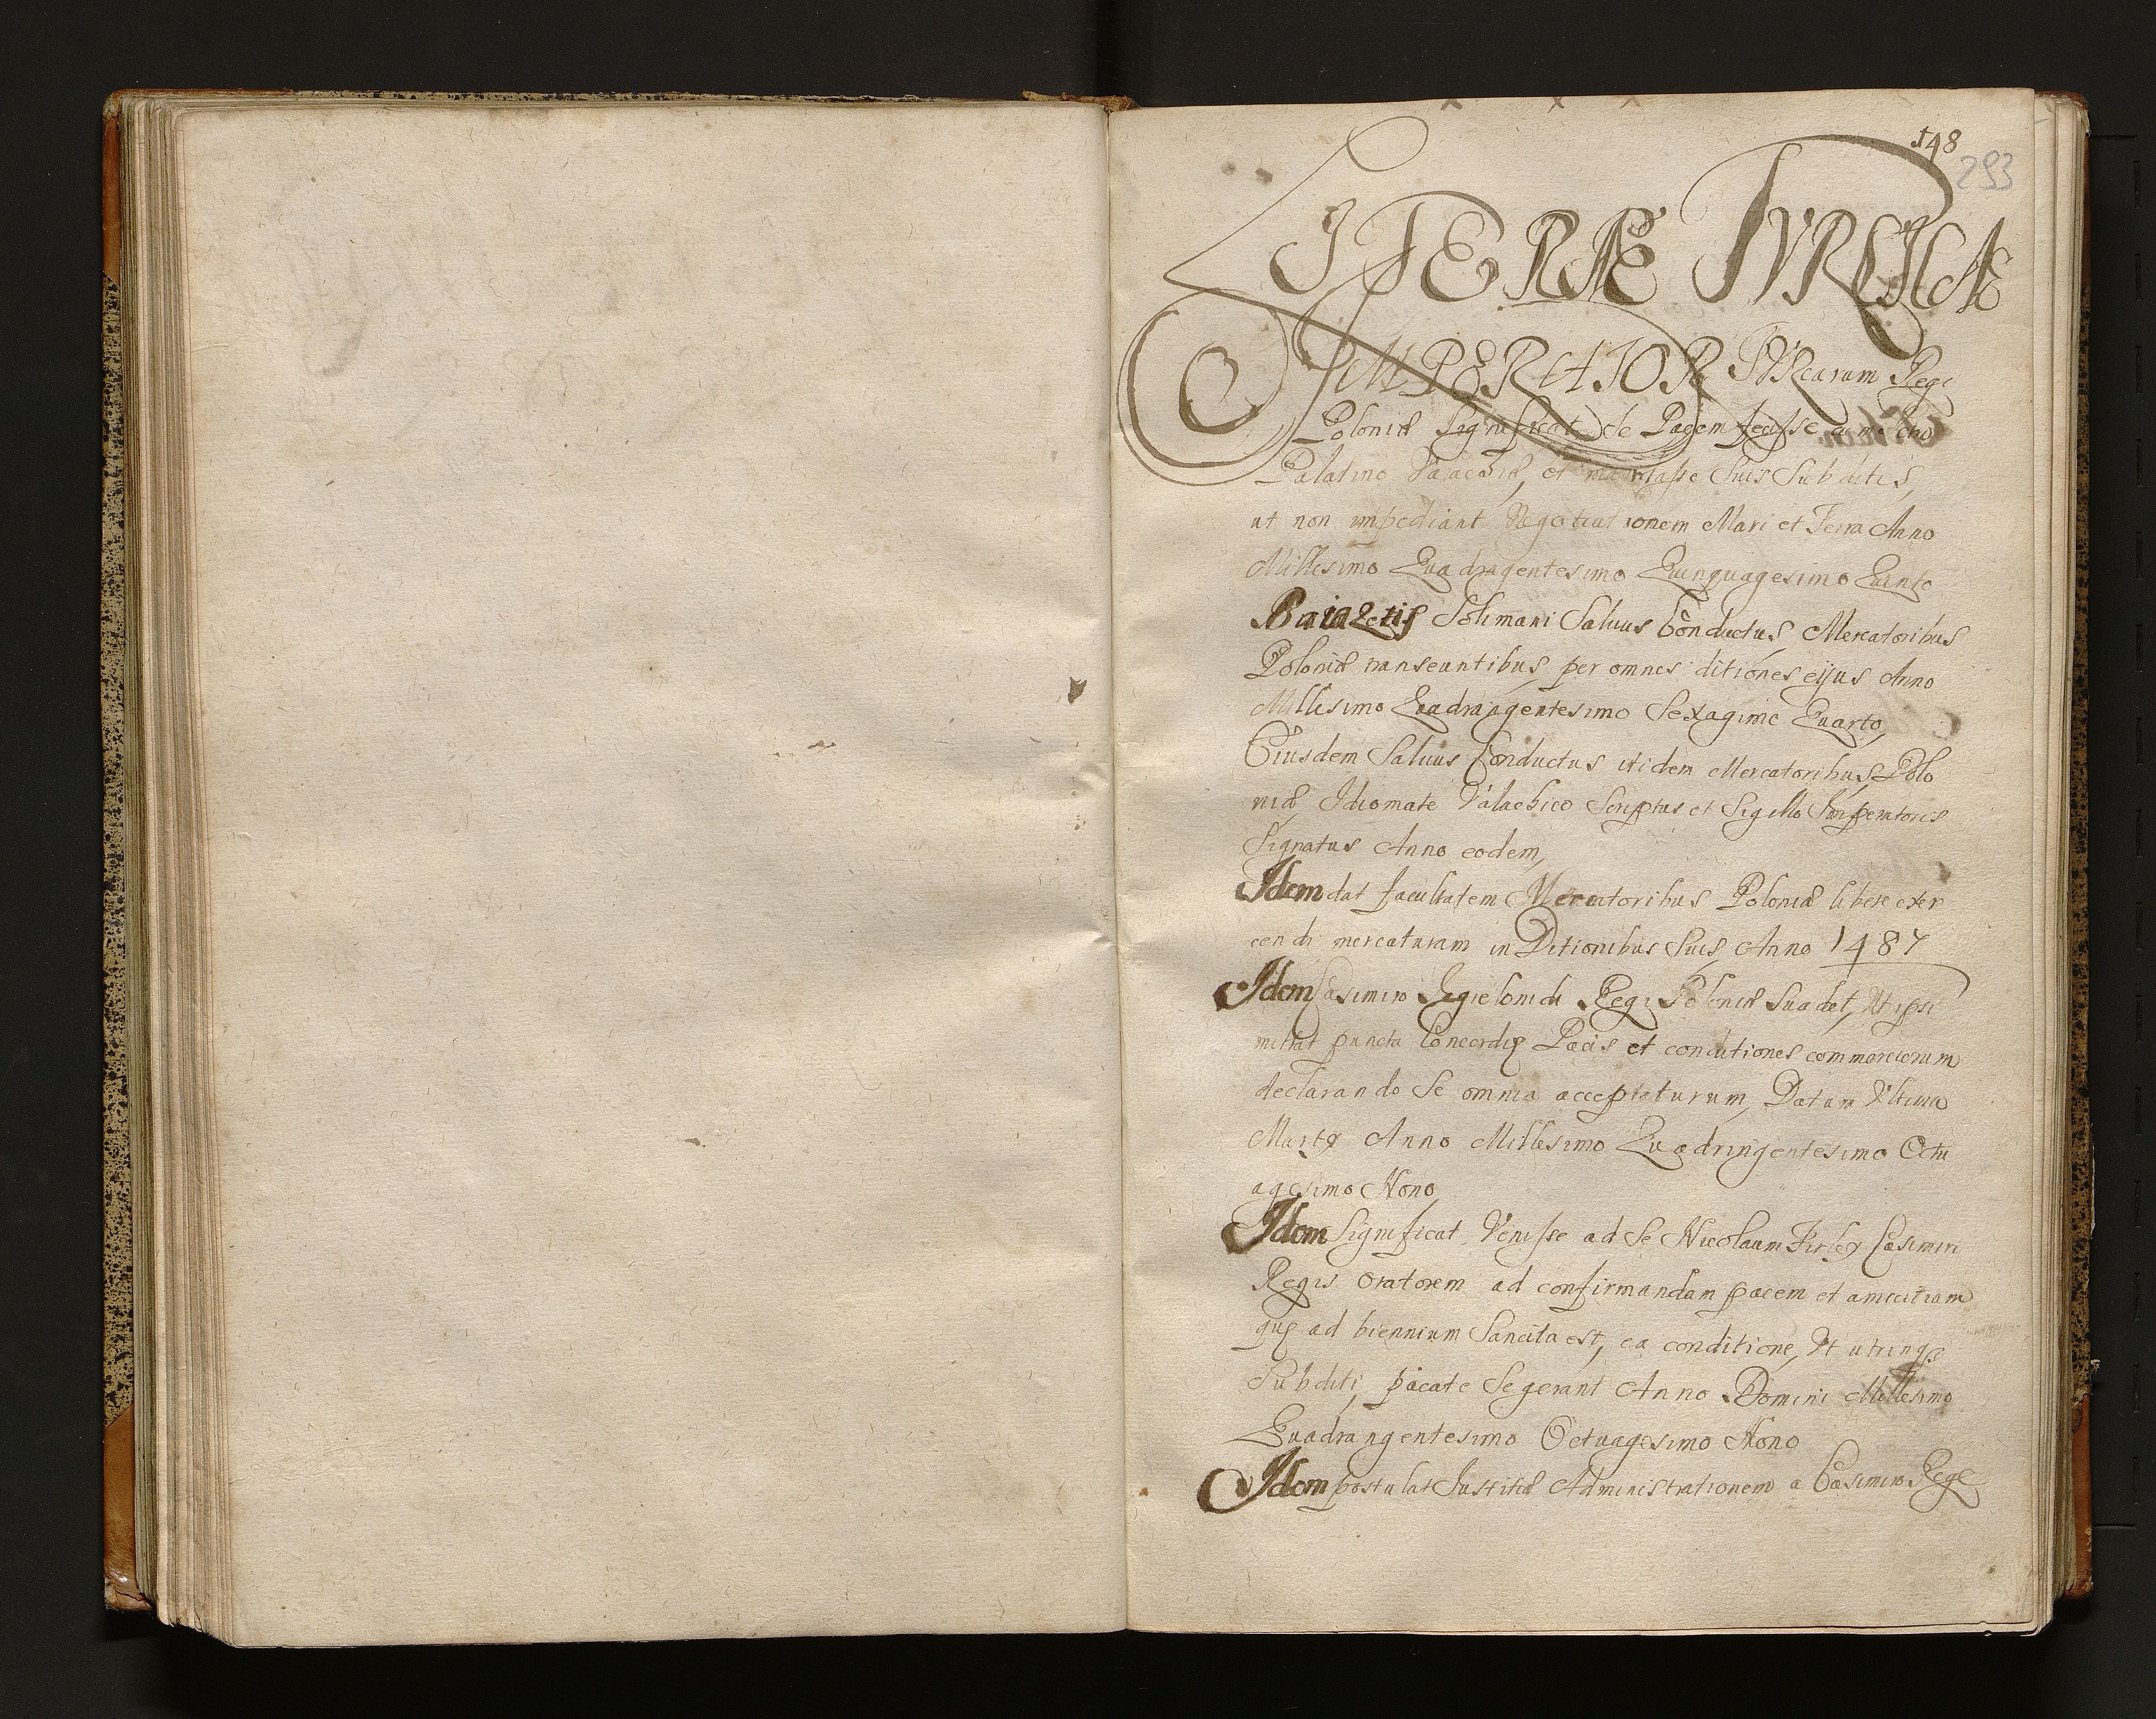 148
293
LITERAE TVRCICAE
IMPERATOR TVRcarum Regi
Poloniæ Significat se Pacem fecisse cum
Palatino Valachiæ, et mandasse Suis Subditis,
ut non impediant Negotiationem Mari et Terra Anno
Millesimo Quadragentesimo Quinquagesimo Quinto
Baiazetis Solimani Saluus Conductus Mercatoribus
Poloniæ transeuntibus per omnes ditiones eijus Anno
Millesimo Quadragentesimo Sexagimo Quarto,
Eiusdem Saluus Conductus itidem Mercatoribus Polo
niæ Idiomate Valachico Scriptus et Sigillo Imperatoris
Signatus Anno eodem,
Idem dat facultatem Mercatoribus Poloniæ libere exer
cendi mercaturam in Ditionibus Suis Anno 1487
Idem Casimiro Jegielonidi Regi Poloniæ Suadet, Vt ipsi
mittat puncta Concordię Pacis et conditiones commerciorum
declarando Se omnia acceptaturum, Datum Vltima
Marty Anno Millesimo Quadringentesimo Octu
agesimo Nono
Idem Significat Venisse ad Se Nicolaum Firley Casimiri
Regis Oratorem ad confirmandam pacem et amicitiam
quę ad biennium Sancita est, ea conditione, Vt utrinqꝫ
Subditi, pacate Se gerant Anno Domini Millesimo
Quadrangentesimo Octuagesimo Nono
Idem postulat Justitiæ Administrationem a Casimiro Rege